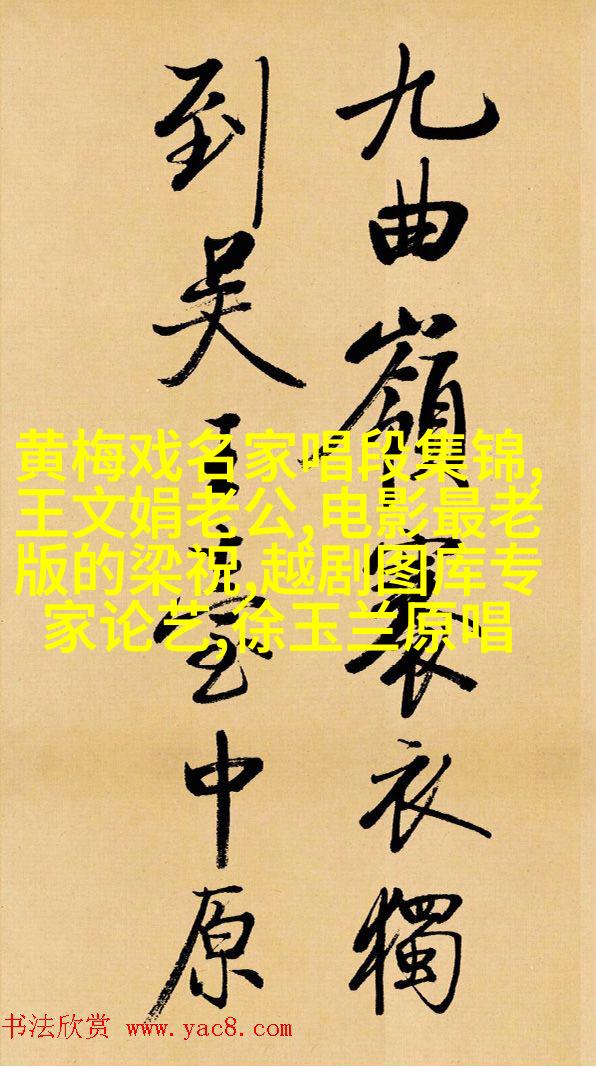 九曲嶺褰衣獨
到吴王臺中原
黄梅戏名家唱段集锦,
王文娟老公,电影最老
版的梁祝,越剧图库专
家论艺,徐玉兰原唱
书法欣赏 www.yac8.com